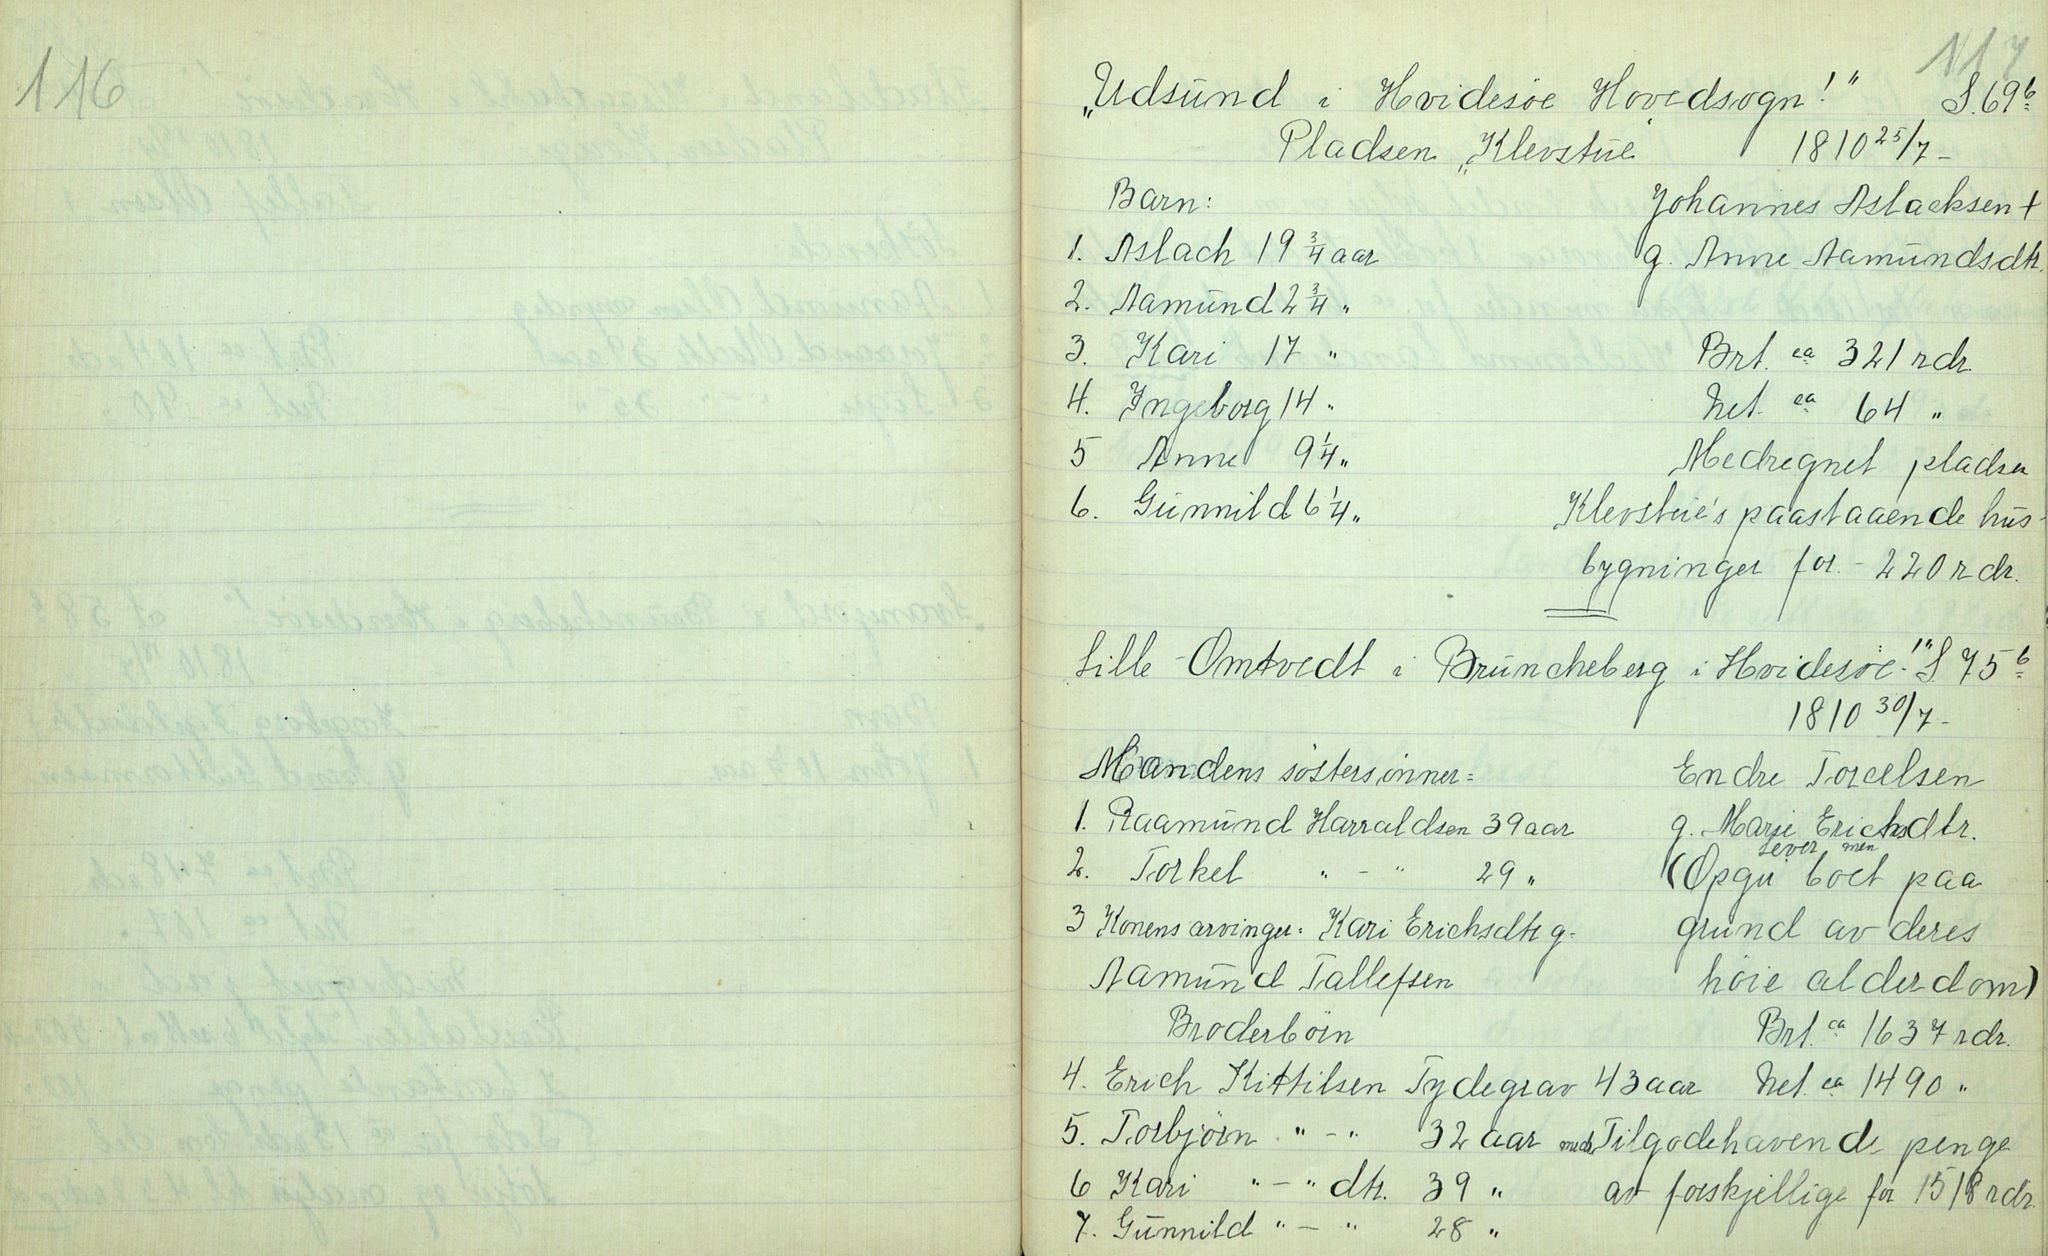 116
117
„Udsund i Hvidesøe Hovedsogn!" S. 69b
Pladsen „Klevstue" 1810 25/7 -
Barn: Johannes Aslacksen +
1. Aslach 19 3/4 aar g. Anne Aamundsdtr.
2. Aamund 2 3/4 "
3. Kari 17 " Brt. ca 321 rdr.
4. Ingeborg 14 " Net. ca 64 "
5 Anne 9 1/4 " Medregnet pladsen
6. Gunnild 6 1/4 " Klevstue's paastaaende hus-
bygninger for - 220 rdr.
Lille - Omtvedt i Bruncheberg i Hvidesøe!" S. 75b
1810 30/7 -
Mandens søstersønner: Endre Torcelsen
1. Raamund Harraldsen 39 aar g. Marie Erichsdtr.
2. Torkel " - " 29 " (Lever men Opgir boet paa
3 Konens arvinger: Kari Erichsdtr g. grund av deres
Aamund Tallefsen høie alderdom)
Broderbørn Brt. ca 1637 rdr.
4. Erich Kittilsen Tydegrav 43 aar Net ca 1490 "
5. Torbjørn " - " 32 aar medr. Tilgodehavende penge
6 Kari " - " dtr. 39 " av forskjellige for 1518 rdr.
7. Gunnild " - " 28 "